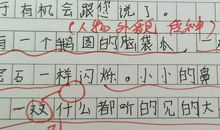 于有机会跟您说了。
(人物外貌传神)
有一个鹅圆的脑袋瓜
宝石一样闪烁。小小的鼻
一双什么都听的见的大